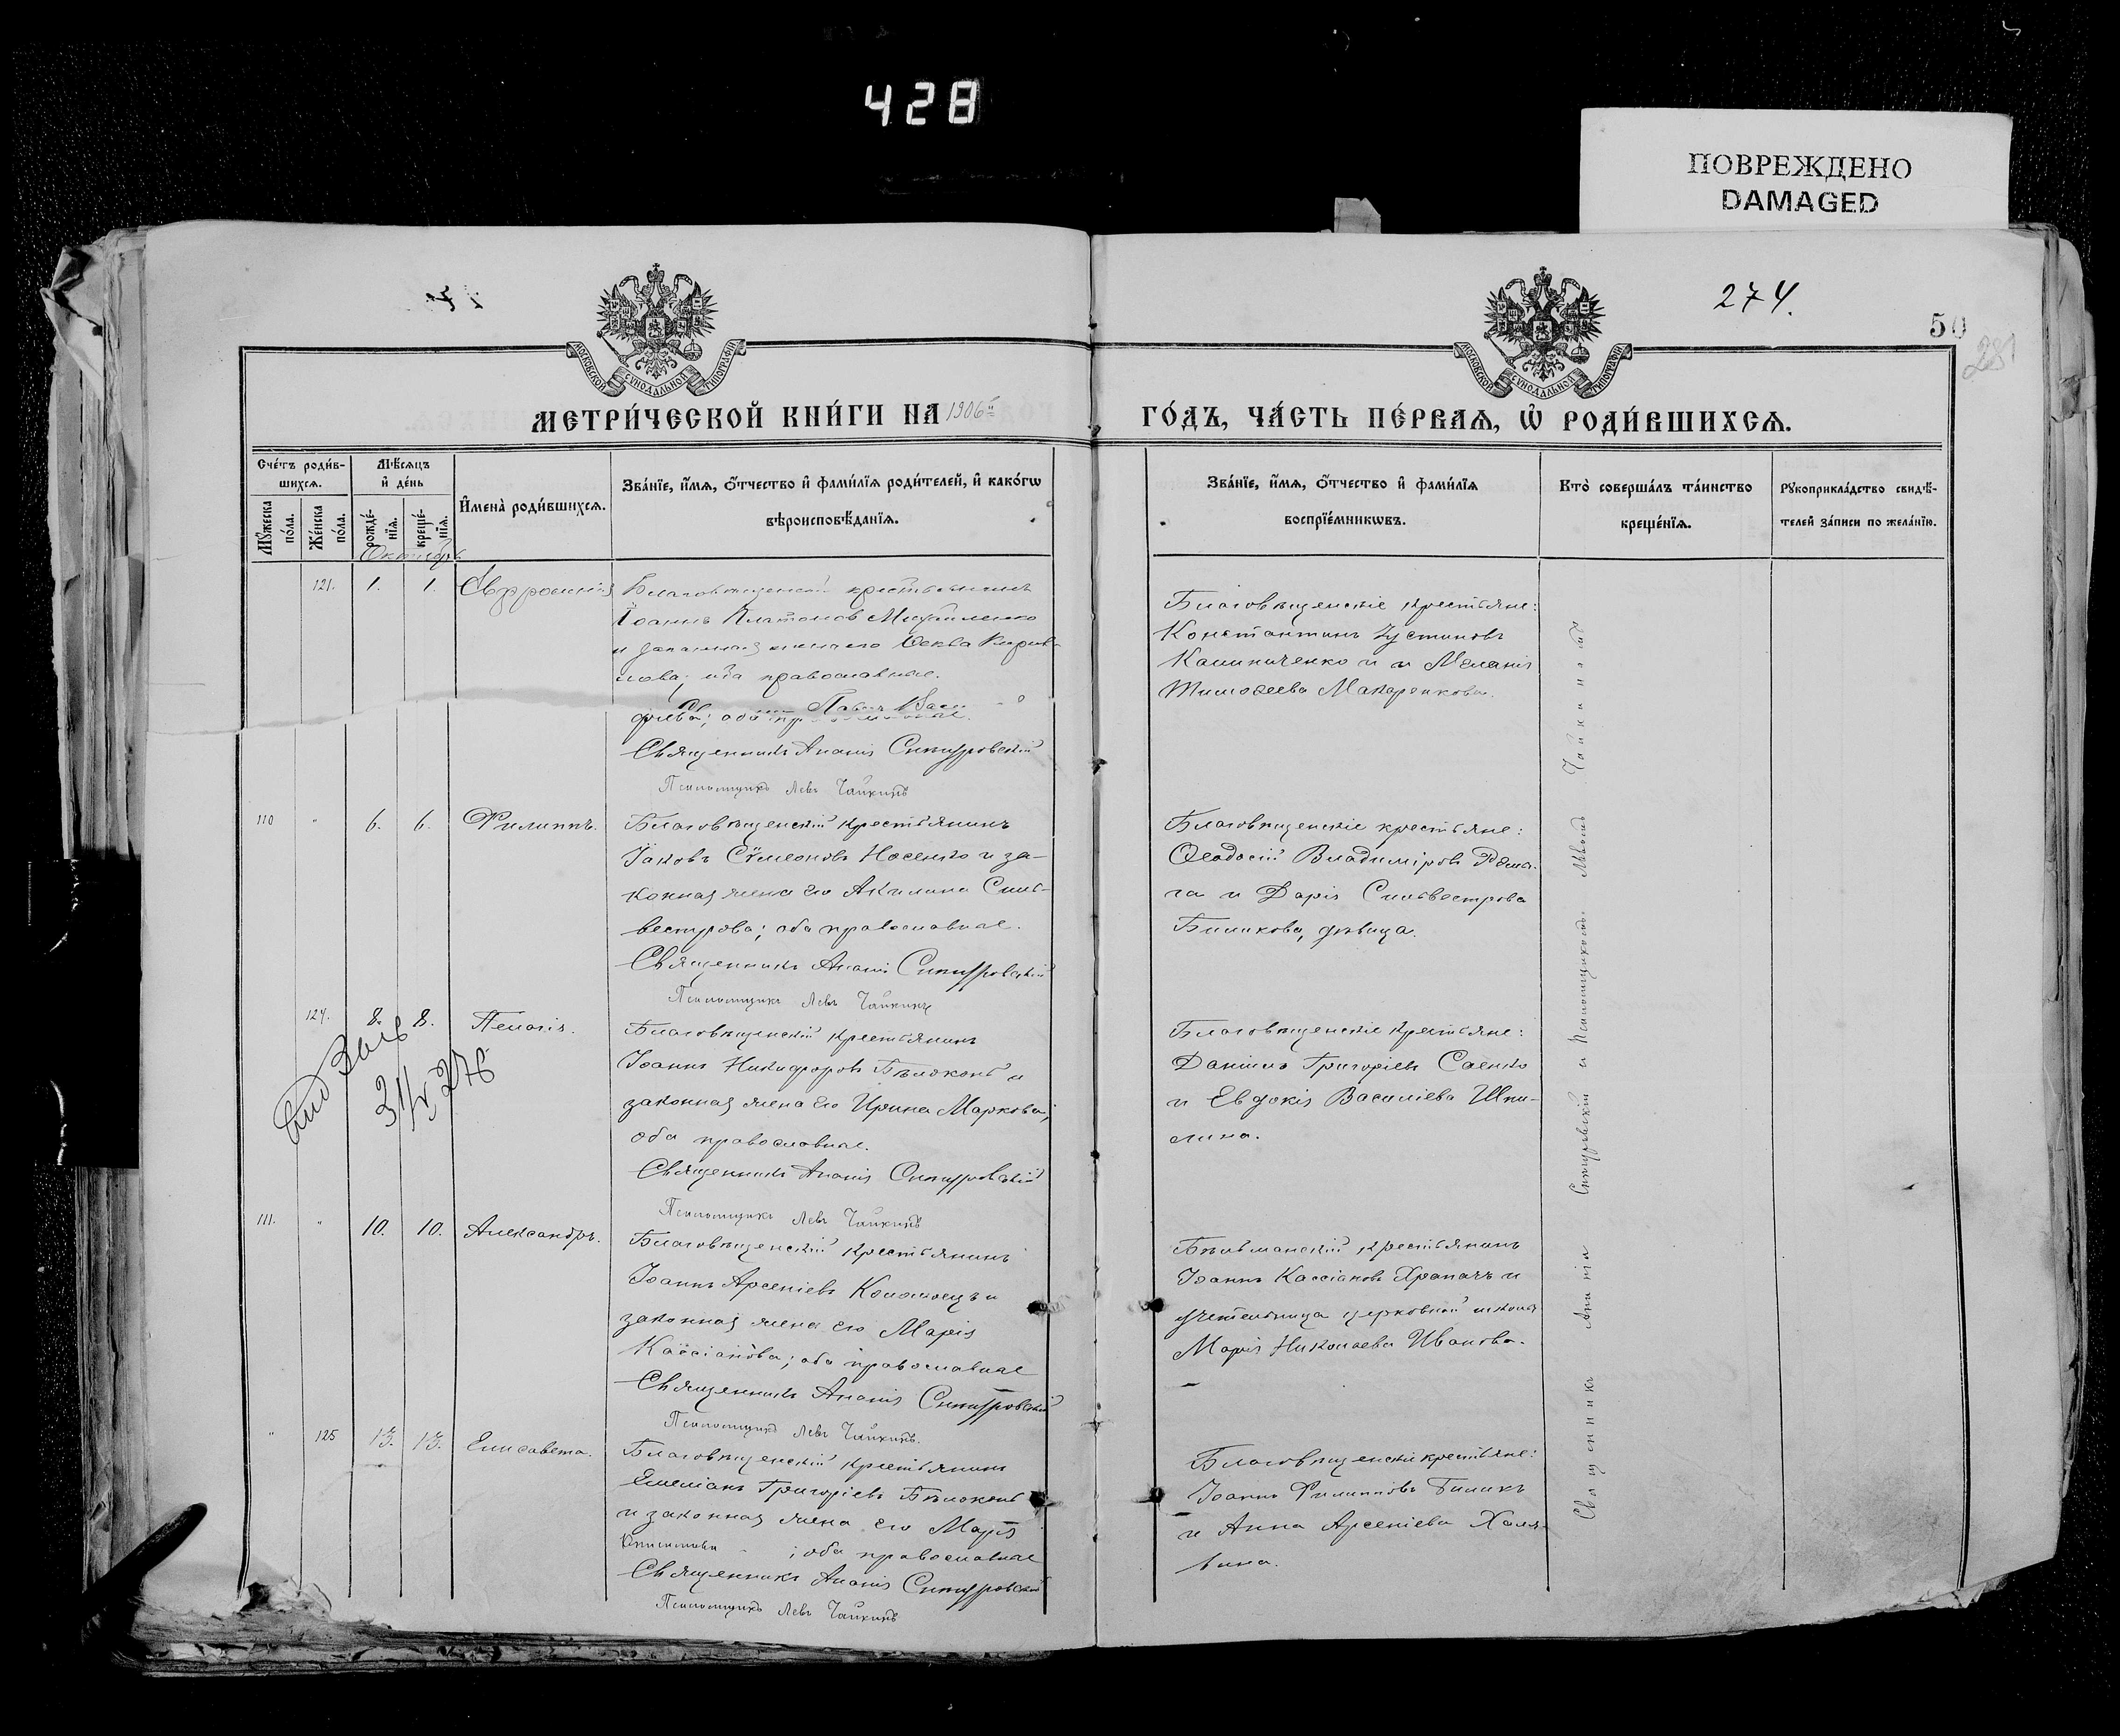 428
ПОВРЕЖДЕНО
DAMAGED
274.
50
281
МОСКОВСКОЙ СѴНОДАЛЬНОЙ ТИПОГРАФІИ
МОСКОВСКОЙ СѴНОДАЛЬНОЙ ТИПОГРАФІИ
МЕТРИ́ЧЕСКОЙ КНИ́ГИ НА 1906й
ГО́ДЪ, ЧА́СТЬ ПЕ́РВАЯ, Ѡ҆ РОДИ́ВШИХСЯ.
Сче́тъ роди́в-
шихся.
Мѣ́сяцъ
и҆ де́нь
Мꙋ́жеска
по́ла.
Же́нска
по́ла.
рожде́-
нїя.
креще́-
нїя.
И҆мена̀ роди́вшихся.
Зва́нїе, и҆́мя, ѻ҆́тчество и҆ фами́лїя роди́телей, и҆ како́гѡ
вѣроисповѣ́данїя.
Зва́нїе, и҆́мя, ѻ҆́тчество и҆ фами́лїя
воспрїе́мникѡвъ.
Кто̀ соверша́лъ та́инство
креще́нїя.
Рꙋкоприкла́дство свидѣ́-
телей за́писи по жела́нїю.
Октябрь
121. 1. 1. Евфросинія
Благовѣщенскій крестьянинъ
Іоаннъ Платоновъ Михайленко
и законная жена его Ѳекла Кирил-
лова; оба православные.
Благовѣщенскіе крестьяне:
Константинъ Іустиновъ
Калиниченко и Меланія
Тимоѳеева Макаренкова.
Священникъ Ананія Снѣгуровскій
Псаломщикъ Левъ Чайкинъ
110 " 6. 6. Филиппъ.
Благовѣщенскій крестьянинъ
Іаковъ Сѵмеоновъ Носенко и за-
конная жена его Акилина Силь-
вестрова; оба православные.
Священникъ Ананія Снѣгуровскій
Псаломщикъ Левъ Чайкинъ
Благовѣщенскіе крестьяне:
Ѳеодосій Владиміровъ
и Дарія Сильвестрова
Биликова, дѣвица.
124. 8. 8. Пелагія.
Благовѣщенскій крестьянинъ
Іоаннъ Никифоровъ Бѣлоконь и
законная жена его Ирина Маркова;
оба православные.
Священникъ Ананія Снѣгуровскій
Псаломщикъ Левъ Чайкинъ
Благовѣщенскіе крестьяне:
Даніилъ Григоріевъ Саенко
и Евдокія Василіева Шпи-
лина.
111. " 10. 10. Александръ.
Благовѣщенскій крестьянинъ
Іоаннъ Арсеніевъ Коломоецъ и
законная жена его Марія
Кассіанова; оба православные
Священникъ Ананія Снѣгуровскій
Псаломщикъ Левъ Чайкинъ.
Бѣльманскій крестьянинъ
Іоаннъ Кассіановъ Храпачъ и
учительница церковной школы
Марія Николаева Иванова.
" 125 13. 13. Елисавета.
Благовѣщенскій крестьянинъ
Емеліанъ Григоріевъ Бѣлоконь
и законная жена его Марія
; оба православные
Священникъ Ананія Снѣгуровскій
Псаломщикъ Левъ Чайкинъ
Благовѣщенскіе крестьяне:
Іоаннъ Филипповъ Биликъ
и Анна Арсеніева Халя-
вина.
Священникъ Ананія Снѣгуровскій и Псаломщикомъ Львомъ Чайкинымъ